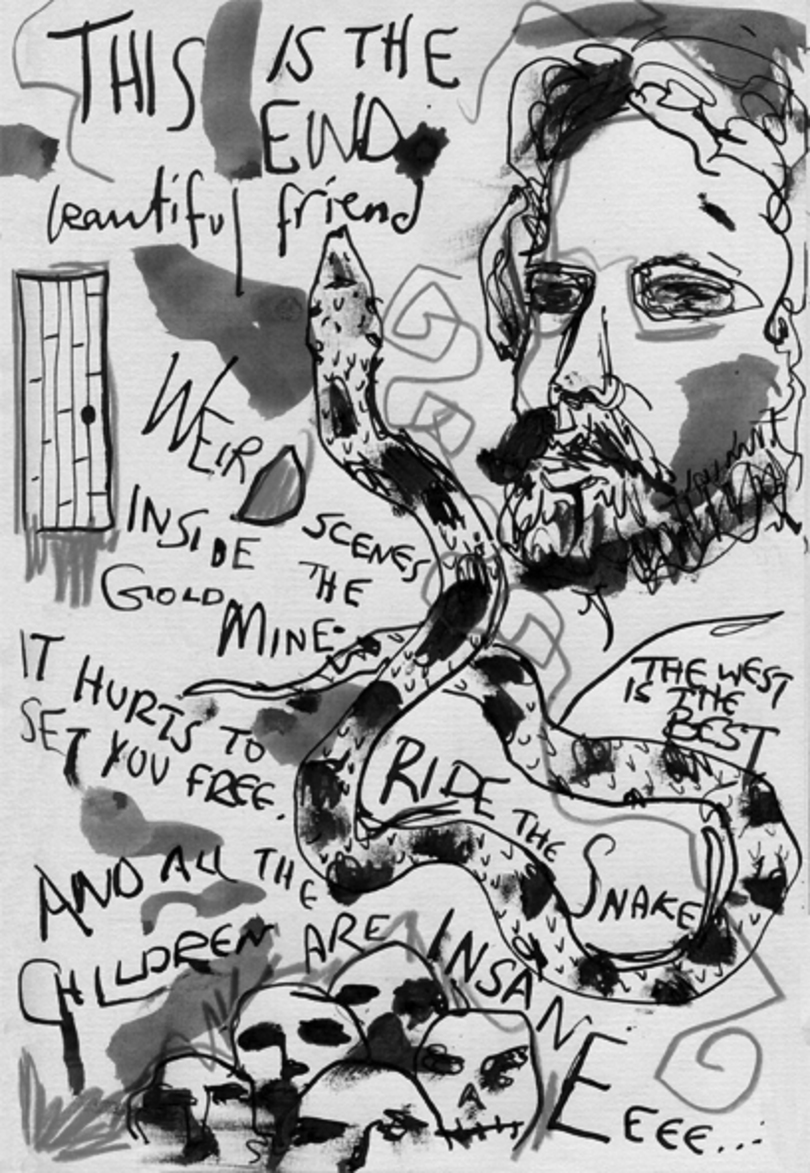 THIS IS THE
END
beautiful friend
WEIRD
SCENES
INSIDE THE
GOLD
MINE
IT HURTS TO
SET YOU FREE.
THE WEST
IS THE
BEST
RIDE THE
SNAKE
AND ALL THE
CHILDREN ARE INSANE
EEEE...